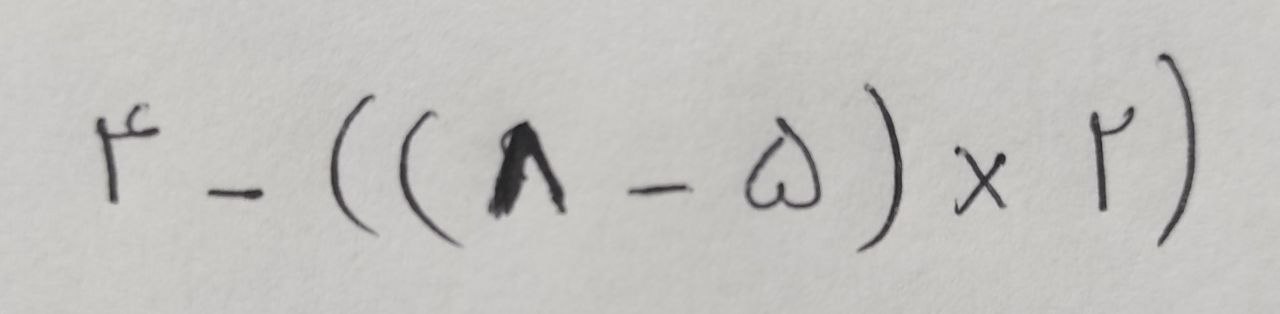 ۴ - ((۸ - ۵) × ۲)